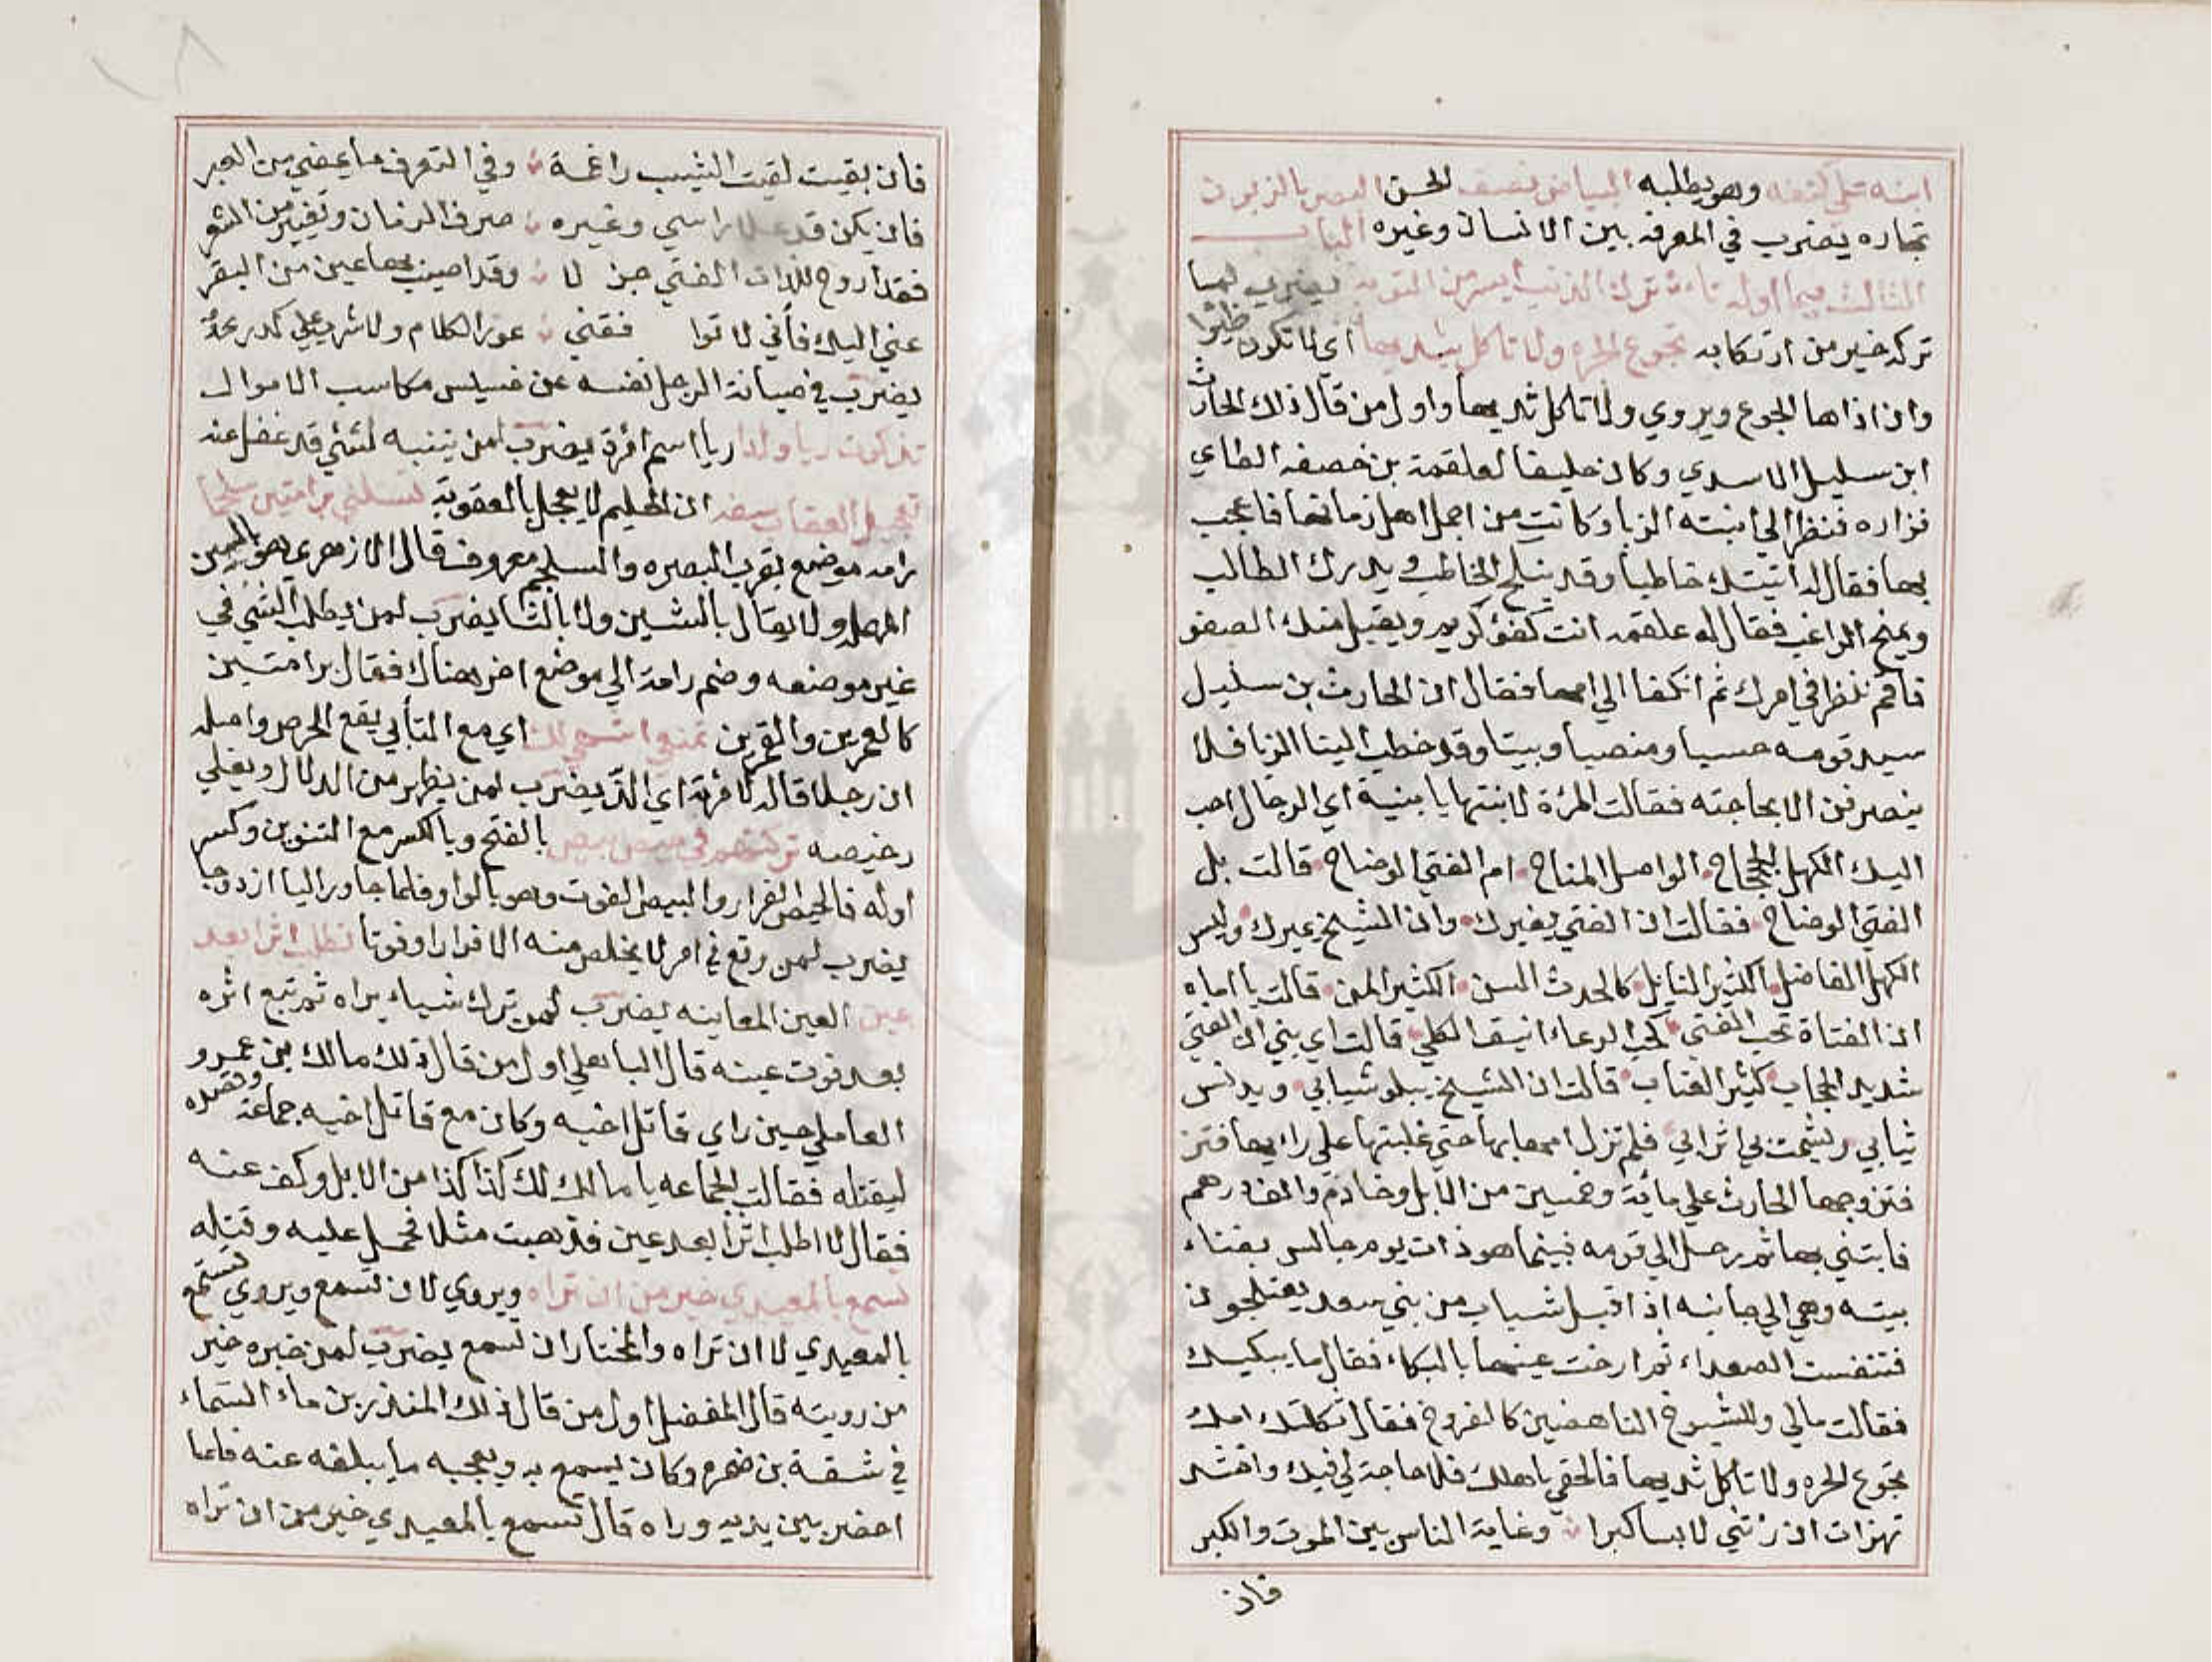 ابنه على كتفه وهو يطلبه البياض نصف الحسن البعير بالزبون
تجاره يضرب في المعرفه بين الانسان وغيره الباب
الثالث فيما اوله تاء ترك الذنب ايسر من التوبه يضرب لما
تركه خير من ارتكابه تجوع الحره ولا تاكل بثدييها اي لا تكون ظئرا
وان اذاها الجوع ويروي ولا تاكل ثدييها واول من قال ذلك الحارث
ابن سليل الاسدي وكان حليفا لعلقمة بن خصفه الطاي
فزاره فنظر الي ابنته الزبا وكانت من اجمل اهل زمانها فاعجب
بها فقال له اتيتك خاطبا وقد ينكح الخاطب ويدرك الطالب
ويمنح الراغب فقال له علقمه انت كفؤ كريم ويقبل منك الصفو
فاقم ننظر في امرك ثم انكفا الي امها فقال ان الحارث بن سليل
سيد قومه حسبا ومنصبا وبيتا وقد خطب الينا الزبا فلا
ينصرفن الا بحاجته فقالت المرئة لابنتها يا بنية اي الرجال احب
اليك الكهل الجحجاح الواصل المناح ام الفتي الوضاح قالت بل
الفتي الوضاح فقالت ان الفتي يغيرك وان الشيخ يميرك وليس
الكهل الفاضل الكثير النايل كالحدث السن الكثير المن قالت يا اماه
ان الفتاة تحب الفتي كحب الرعاء انيق الكلي قالت اي بني ان الفتي
شديد الحجاب كثير العتاب قالت ان الشيخ يبلو شبابي ويدنس
ثيابي ويشمت بي اترابي فلم تزل امها بها حتي غلبتها علي رايها
فتزوجها الحارث علي مائة وخمسين من الابل وخادم والف درهم
فابتني بها ثم رحل الي قومه فبينما هو ذات يوم جالس بفناء
بيته وهي الي جانبه اذ اقبل شباب من بني سعد يعتلجون
فتنفست الصعداء ثم ارخت عينها بالبكاء فقال ما يبكيك
فقالت مالي وللشيوخ الناهضين كالفروخ فقال ثكلتك امك
تجوع الحره ولا تاكل ثدييها فالحقي باهلك فلا حاجة لي فيك وانشد
تهزات ان راتني لابسا كبرا وغاية الناس بين الموت والكبر
فان
فان بقيت لقيت الشيب راغمة وفي التعرف ما يمضي من العبر
فان يكن قد علا راسي وغيره صرف الزمان وتغيير من الشعر
فقد اروح للذات الفتي جذ لا وقد اصيب بها عين من البقر
عني اليك فأني لا توا فقني عور الكلام ولا شرب علي كدر
يضرب في صيانة الرجل نفسه عن خسيس مكاسب الاموال
تذكرت ريا ولدا ريا اسم امرئة يضرب لمن يتنبه لشئي قد غفل عنه
تعجيل العقاب سفه ان الحليم لا يعجل بالعقوبة تسلني برامتين سلجما
رامه موضع بقرب البصره والسلجم معروف قال الازهري هو بالسين
المهمله ولا يقال بالشين ولا بالثا يضرب لمن يطلب الشئ في
غير موضعه وضم رامة الي موضع اخر هناك فقال برامتين
كالعمرين والقمرين تمنعي اشهي لك اي مع التأبي يقع الحرص واصله
ان رجلا قال لامرئة اي الذ يضرب لمن يظهر من الدلال ويغلي
رخيصه تركتهم في حيص بيص بالفتح وبالكسر مع التنوين وكسر
اوله فالحيص الفرار والبيص الفوت وهو بالواو فلما جاور اليا ازدوجا
يضرب لمن وقع في امر لا يخلص منه الا فرارا وفوتا تطلب اثرا بعد
عين العين المعاينه يضرب لمن ترك شياء يراه ثم تبع اثره
بعد فوت عينه قال الباهلي اول من قال ذلك مالك بن عمرو
العاملي حين راي قاتل اخيه وكان مع قاتل اخيه جماعة وقصده
ليقتله فقالت الجماعه يا مالك لك كذا كذا من الابل وكف عنه
فقال لا اطلب اثرا بعد عين فذهبت مثلا فحمل عليه وقتله
تسمع بالمعيدي خير من ان تراه ويروي لان تسمع ويروي تستمع
بالمعيدي لا ان تراه والمختار ان تسمع يضرب لمن خبره خير
من رويته قال المفضل اول من قال ذلك المنذر بن ماء السماء
في شقة بن ضمره وكان يسمع به ويعجبه ما يبلغه عنه فلما
احضر بين يديه وراه قال تسمع بالمعيدي خير من ان تراه